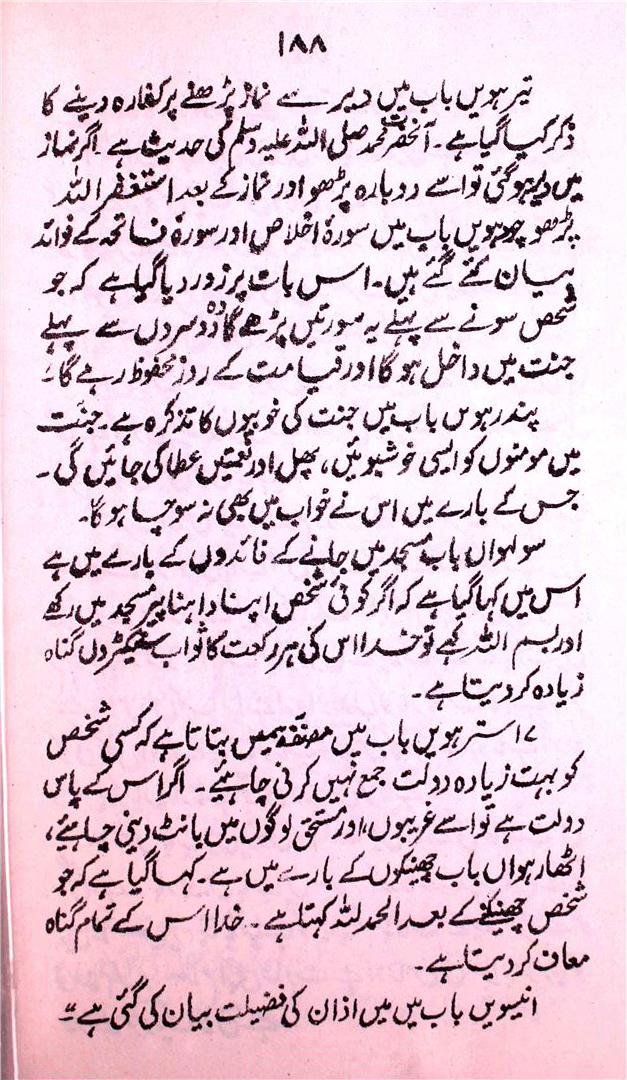 ۱۸۸
تیرہویں باب میں دیر سے نماز پڑھنے پر کفارہ دینے کا
ذکر کیا گیا ہے۔ آنحضرت محمد صلی اللہ علیہ وسلم کی حدیث ہے۔ اگر نماز
میں دیر ہو گئی تو اسے دوبارہ پڑھو اور نماز کے بعد استغفر اللہ
پڑھو چودہویں باب میں سورۂ اخلاص اور سورۂ فاتحہ کے فوائد
بیان کئے گئے ہیں۔ اس بات پر زور دیا گیا ہے کہ جو
شخص سونے سے پہلے یہ سورتیں پڑھے گا وہ دوسروں سے پہلے
جنت میں داخل ہو گا اور قیامت کے روز محفوظ رہے گا۔
پندرہویں باب میں جنت کی خوبیوں کا تذکرہ ہے۔ جنت
میں مومنوں کو ایسی خوشبوئیں، پھل اور نعمتیں عطا کی جائیں گی۔
جس کے بارے میں اس نے خواب میں بھی نہ سوچا ہو گا۔
سولہواں باب مسجد میں جانے کے فائدوں کے بارے میں ہے
اس میں کہا گیا ہے کہ اگر کوئی شخص اپنا داہنا پیر مسجد میں رکھے
اور بسم اللہ کہے تو خدا اس کی ہر رکعت کا ثواب سینکڑوں گناہ
زیادہ کر دیتا ہے۔
۱۷ سترہویں باب میں مصنف ہمیں بتاتا ہے کہ کسی شخص
کو بہت زیادہ دولت جمع نہیں کرنی چاہئیے۔ اگر اس کے پاس
دولت ہے تو اسے غریبوں، اور مستحق لوگوں میں بانٹ دینی چاہئیے،
اٹھارہواں باب چھینکوں کے بارے میں ہے۔ کہا گیا ہے کہ جو
شخص چھینکنے کے بعد الحمد للہ کہتا ہے۔ خدا اس کے تمام گناہ
معاف کر دیتا ہے۔
انیسویں باب میں میں اذان کی فضیلت بیان کی گئی ہے۔"